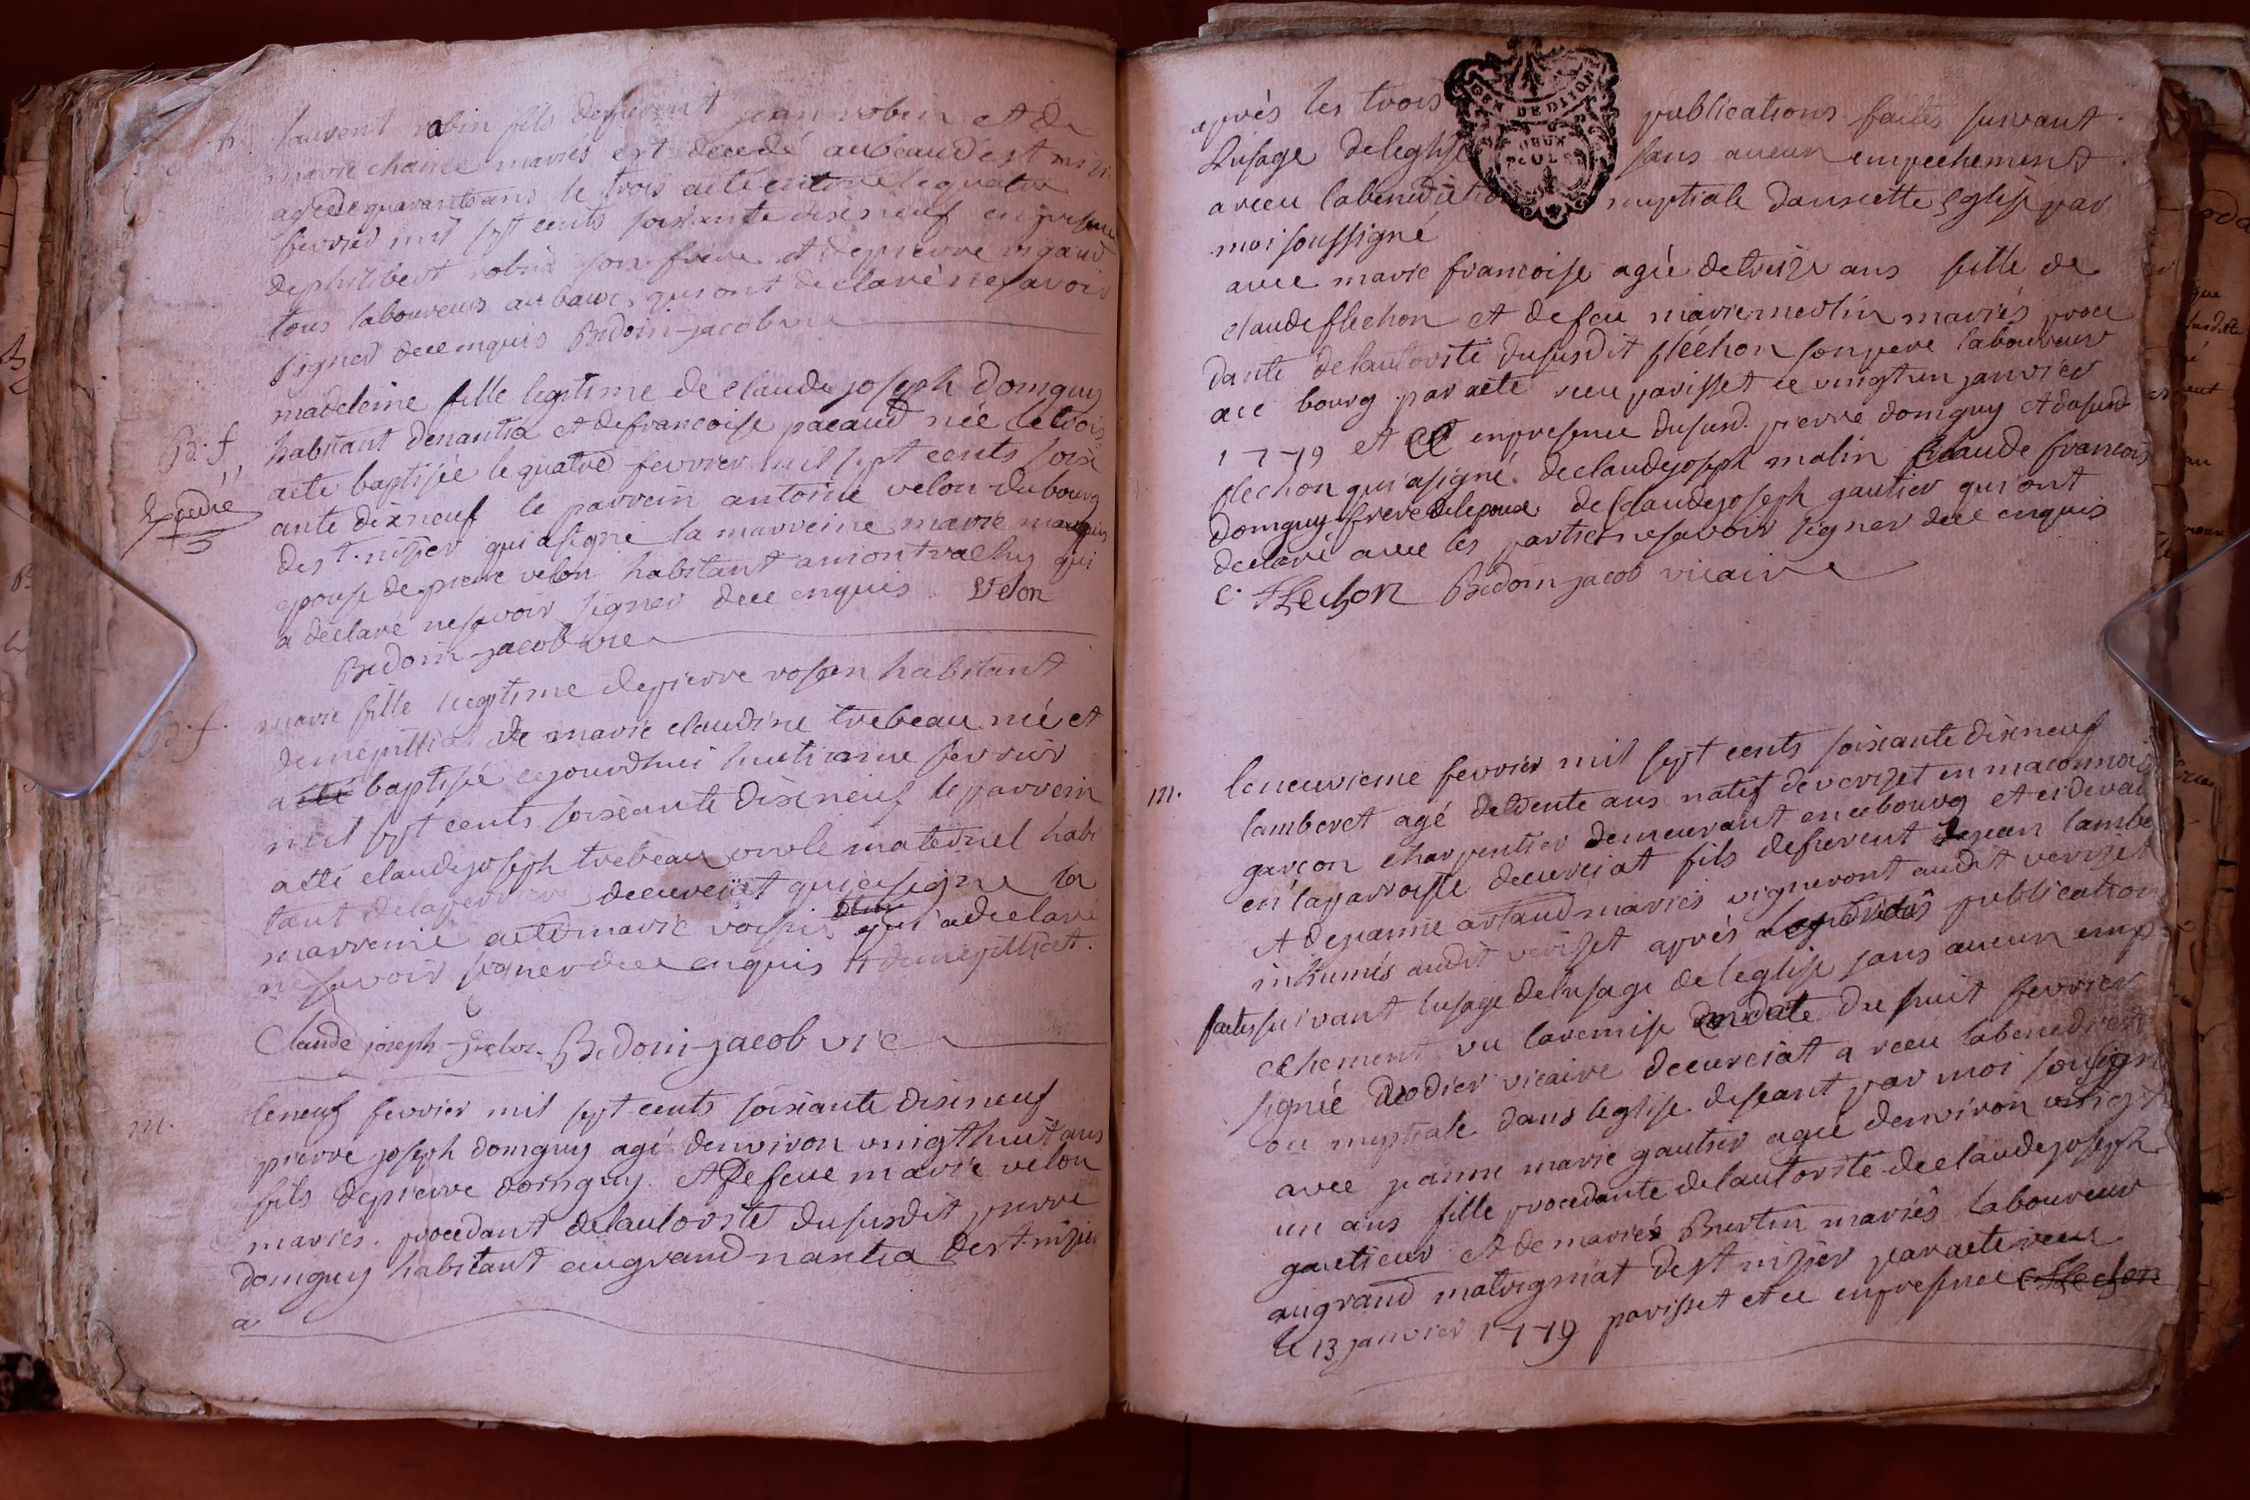 h. laurent robin fils defserent jean robin et de
marie chanée mariés est decedé aubeaudest mizi
agé de quarante ans le trois a eté enterré le quatre
fevrier mil sept cents soixante dixneuf en presence
de philibert robin son frere et de pierre rigaud
tous laboureurs au baux qui ont declaré ne savoir
signer de ce enquis Bedoin-jacob vre
Bt. f madeleine fille legitime de claude joseph domguy
habitant denantia et de francoise pacaud née le trois
Expedié
a eté baptisée le quatre fevrier mil sept cents soix
ante dixneuf le parrein antoine velon du bourg
de st. nizier qui a signé la marreine marie
epouse de pierre velon habitant amontrachy qui
a declaré ne savoir signer de ce enquis Velon
Bedoin-jacob vre
Bt. f. marie fille legitime de pierre habitant
de marie claudine trebeau née et
a eté baptisée cejourdhui huitieme fevrier
mil sept cents soixante dixneuf le parrein
a eté claude joseph trebeau oncle maternel habi
tant decurciat qui a signé la
marreine a eté marie qui a declaré
ne savoir signer de ce enquis
Claude joseph trebeau Bedoin-jacob vic
m. le neuf fevrier mil sept cents soixante dixneuf
pierre joseph domguy agé denviron vingt huit ans
fils de pierre domguy et de feue marie velon
mariés procedant de lautorité dususdit pierre
domguy habitant augrand nantia de st. mizier
a
après les trois publications faites suivant
lusage de leglise sans aucun empechement
a receu la benediction nuptiale dans cette eglise par
moi soussigné
avec marie francoise agée de treize ans fille de
claude flechon et de feu marie merlin mariés proce
dante de lautorité dususdit flechon son pere laboureur
a ce bourg par acte receu parisset ce vingt un janvier
1779 et ce en presence du susd. pierre domguy et dususd
flechon qui a signé de claude joseph malin claude francois
domguy frere delepoux de claude joseph gautier qui ont
declaré avec les parties ne savoir signer de ce enquis
c. flechon Bedoin-jacob vicaire
m. le neuvieme fevrier mil sept cents soixante dixneuf
lamberet agé de trente ans natif de verizet en maconnois
garçon charpentier demeurant en ce bourg et cidevant
en la parroisse decurciat fils defserent de jean lambe
et de jeanne artaud mariés vigneront audit verizet
inhumés audit verizet après publication
faites suivant lusage de lusage de leglise sans aucun emp
echement vu la remise en date du huit fevrier
signée diodier vicaire decurciat a receu la benedicti
on nuptiale dans leglise de ceant par moi soussigné
avec jeanne marie gautier agée denviron vingt
un ans fille procedante de lautorité de claude joseph
gautieur et de mariés Burtin mariés laboureur
augrand matrignat de st nizier par acte receu
le 13 janvier 1779 parisset et ce en presence c flechon